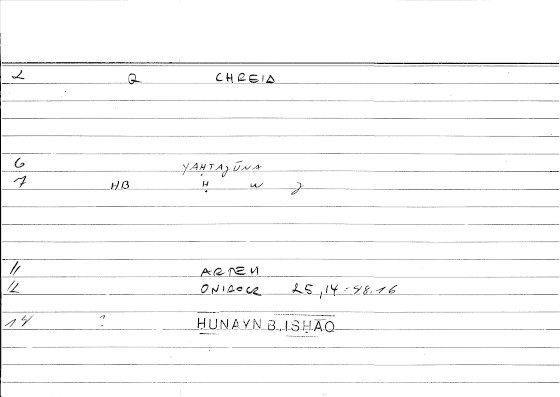 2 Q CHREIA
6 YAḤTAǧŪNA
7 HB Ḥ W ǧ
11 ARTEM
12 ONIROCR 25,14 : 48.16
14 ? HUNAYN B. ISHAQ